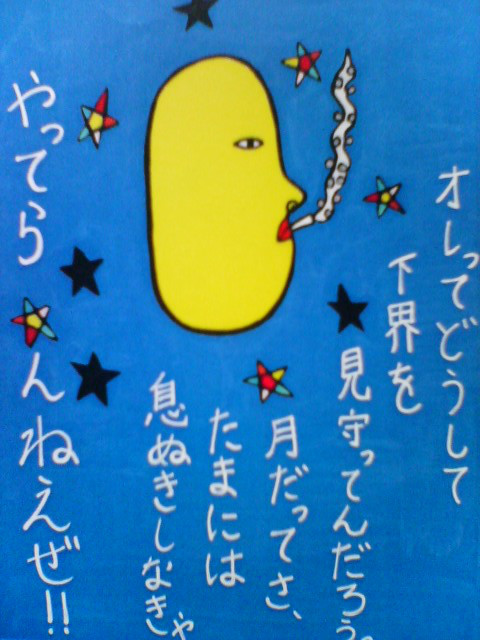 オレってどうして
下界を
見守ってんだろう。
月だってさ、
たまには
息ぬきしなきゃ
やってらんねえぜ!!